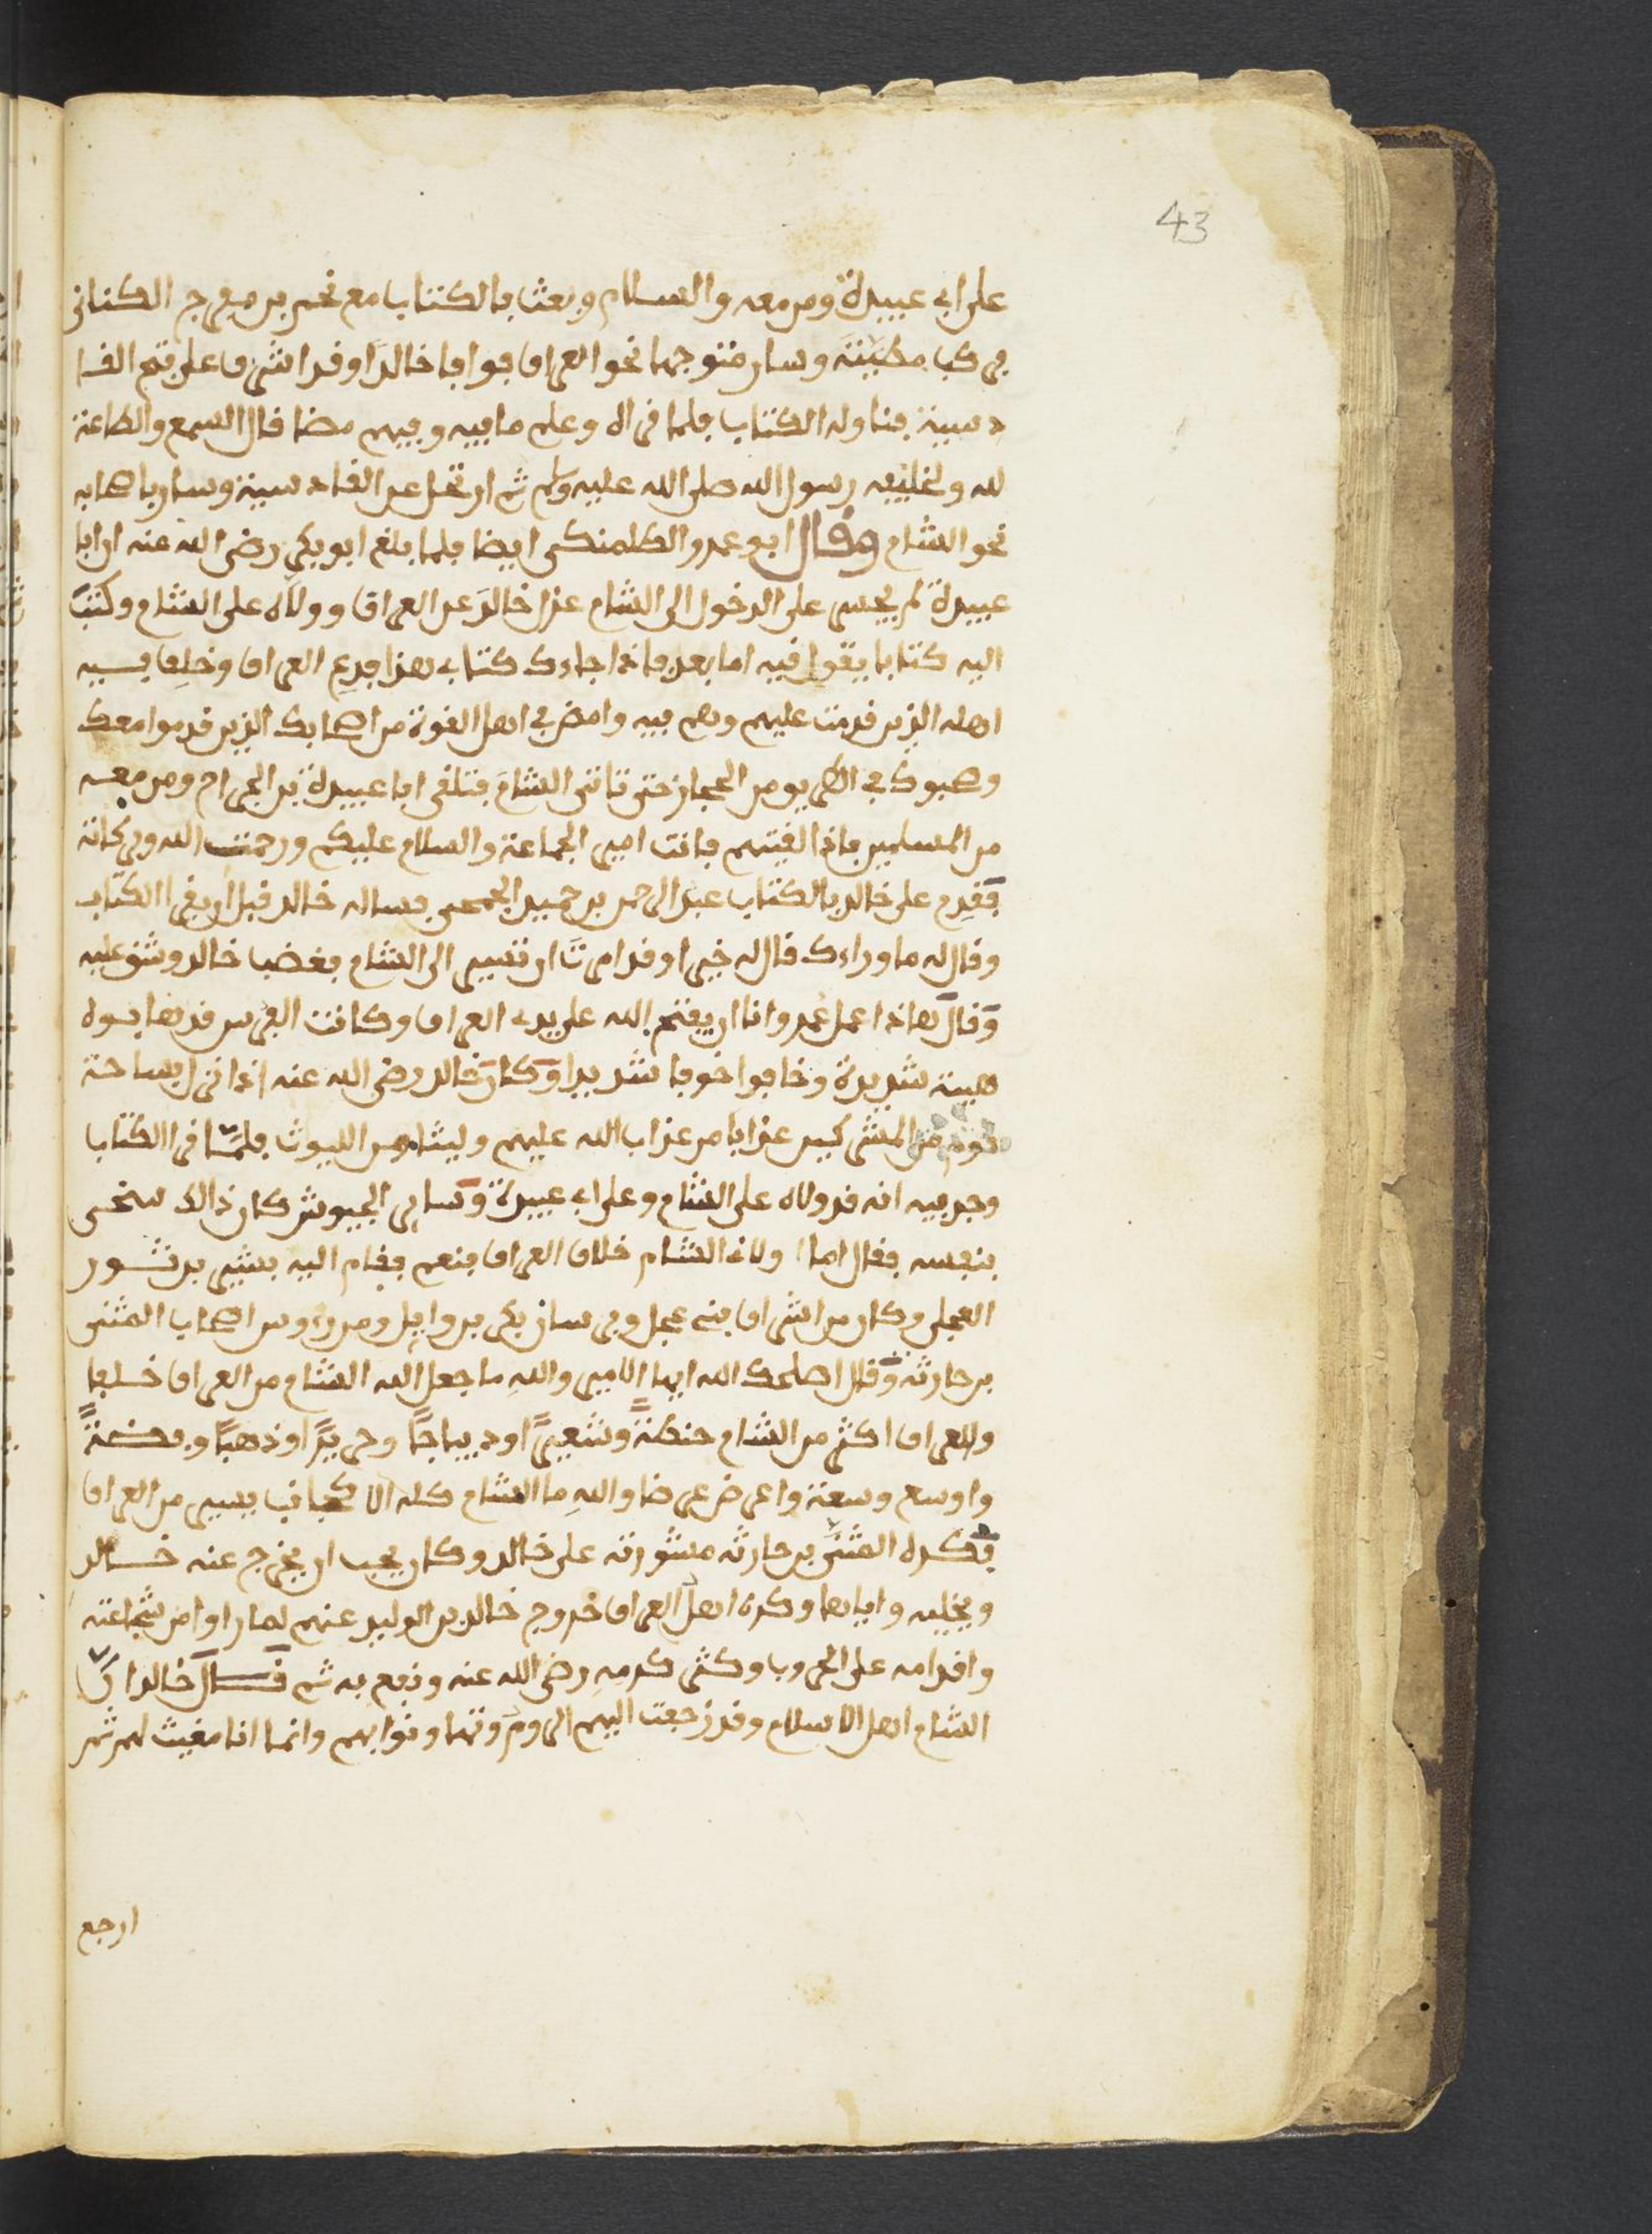 43
على ابي عبيدة ومن معه والسلام وبعث بالكتاب مع نجم بن مفرج الكنانى
فركب مطيته وسار متوجها نحو العراق فوافا خالدا وقد اشرف على فتح القا
دسية فناوله الكتاب فلما قراه وعلم ما فيه وفهم مضا قال السمع والطاعة
لله ولخليفه رسول الله صلى الله عليه وسلم ثم ارتحل عن القادسية وسار باصحابه
نحو الشام وقال ابو عمرو الطلمنكى ايضا فلما بلغ ابو بكر رضى الله عنه ان ابا
عبيدة لم يجسر على الدخول الى الشام عزل خالد عن العراق وولاه على الشام وكتب
اليه كتابا يقول فيه اما بعد فاذا جاءك كتابي هذا فدع العراق وخلف فيه
اهله الذين قدمت عليهم وهم فيه وامض في اهل القوة من اصحابك الذين قدموا معك
وصحبوك في الطريق من الحجاز حتى تاتى الشام فتلقى ابا عبيدة بن الجراح ومن معه
من المسلمين فاذا لقيتهم فانت امير الجماعة والسلام عليكم ورحمت الله وبركاته
فقدم على خالد بالكتاب عبد الرحمن بن حميد الجمحى فساله خالد قبل ان يقرا الكتاب
وقال له ما وراءك قال له خيرا وقد امرت ان تسير الى الشام فغضب خالد وشق عليه
وقال هاذا عمل عمر وانا ان يفتح الله على يدي العراق وكانت الفرس قد هابوه
هيبة شديدة وخافوا خوفا شديدا وكان خالد رضى الله عنه اذا نزل بساحة
قوم من المشركين عذابا من عذاب الله عليهم وليثا من الليوث فلما قرا الكتاب
وجد فيه انه قد ولاه على الشام وعلى ابي عبيدة وساير الجيوش كان ذالك سخى
بنفسه فقال اما اولانى الشام خلاف العراق فنعم فقام اليه بشير بن ثور
العجلى وكان من اشراف بنى عجل وفرسان بكر بن وايل ومن رءوس اصحاب المثنى
بن حارثه وقال اصلحك الله ايها الامير والله ما جعل الله الشام من العراق خلفا
وللعراق اكثر من الشام حنطة وشعيرا وديباجا وحريرا وذهبا وفضة
واوسع وسعة واعرض عرضا والله ما الشام كله الا كجانب يسير من العراق
فكره المثنى بن حارثه مشورته على خالد وكان يحب ان يخرج عنه خالد
ويخليه واياها وكره اهل العراق خروج خالد بن الوليد عنهم لما راوا من شجاعته
واقدامه على الحروب وكثر كرمه رضى الله عنه ونفع به ثم قال خالد ان
الشام اهل الاسلام وقد زحفت اليهم الروم وتهاونوا بهم وانما انا مغيث لهم ثم
ارجع